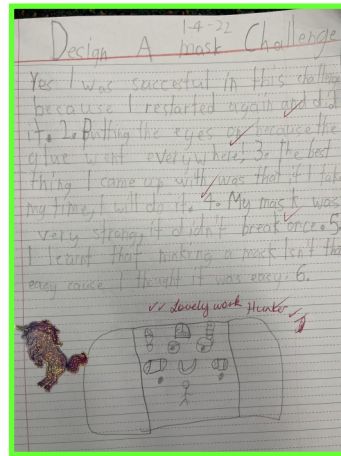 1-4-22
Design A mask Challenge
Yes I was succesful in this challen
because I restarted again and did
it. 2. Putting the eyes on because the
glue went everywhere! 3. the best
thing I came up with was that if I take
my time, I will do it. 4. My mask was
very strong, it didn't break once. 5.
I learnt that making a mask Isn't tha
easy cause I thought it was easy. 6.
Lovely work Hunter